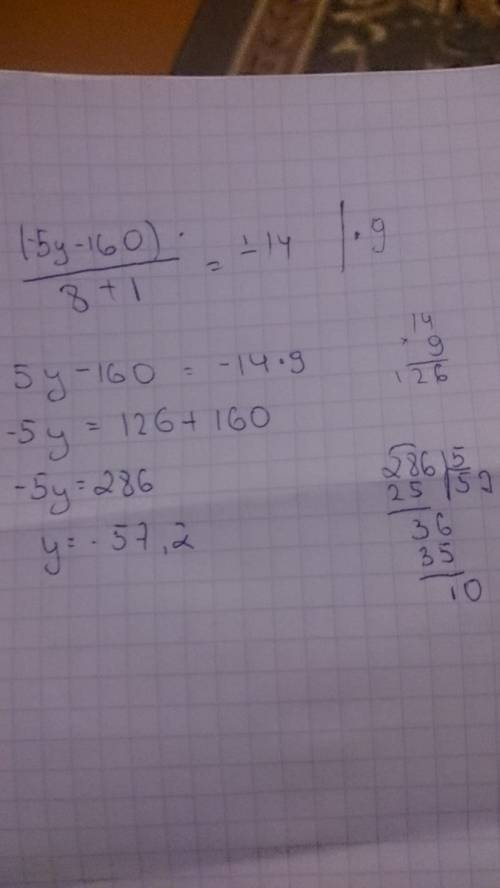 (-5y-160)·
/ 8+1 = ±14 | ·9
5y-160 = -14·9
-5y = 126+160
-5y=286
y=-57,2
14
× 9
126
286 | 5
25
36
35
10